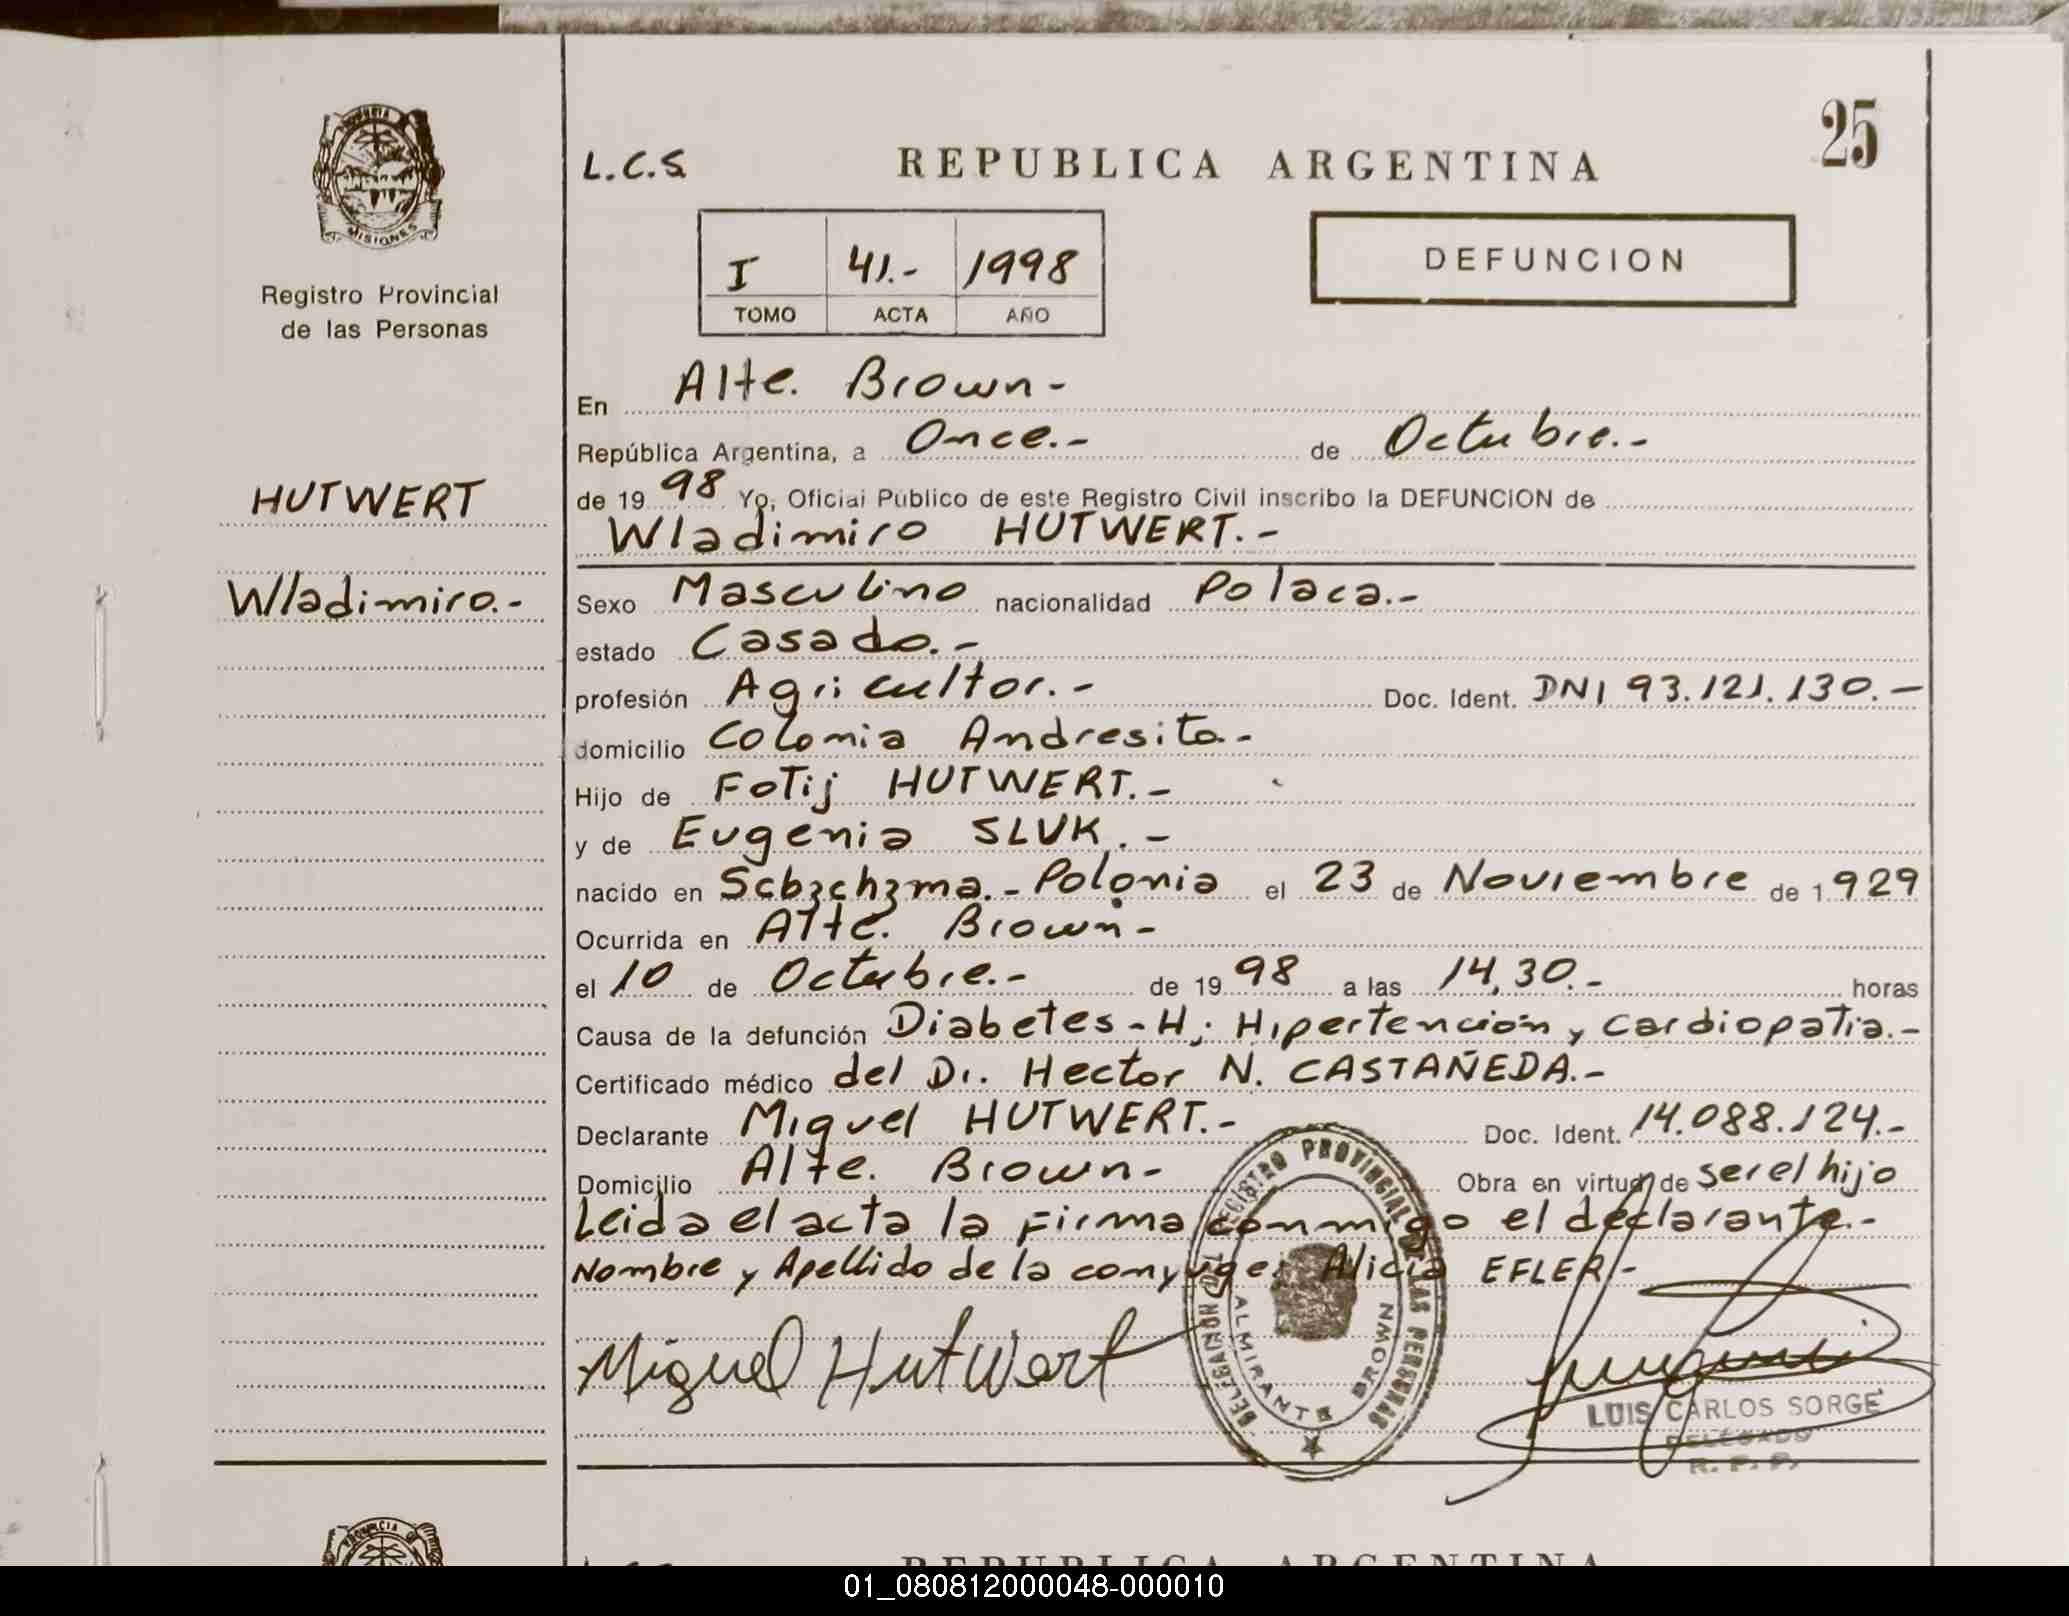 25
PROVINCIA DE
MISIONES
L.C.S.
REPUBLICA ARGENTINA
Registro Provincial
de las Personas
I 41.- 1998
TOMO ACTA AÑO
DEFUNCION
HUTWERT
Wladimiro.-
En Alte. Brown-
República Argentina, a Once.- de Octubre.-
de 1998 Yo, Oficial Público de este Registro Civil inscribo la DEFUNCION de
Wladimiro HUTWERT.-
Sexo Masculino nacionalidad Polaca.-
estado Casado.-
profesión Agricultor.- Doc. Ident. DNI 93.121.130.-
domicilio Colonia Andresito.-
Hijo de Fotij HUTWERT.-
y de Eugenia SLUK.-
nacido en Scbzchzma.- Polonia el 23 de Noviembre de 1929
Ocurrida en Alte. Brown-
el 10 de Octubre.- de 1998 a las 14,30.- horas
Causa de la defunción Diabetes-H; Hipertención y cardiopatia.-
Certificado médico del Dr. Hector N. CASTAÑEDA.-
Declarante Miguel HUTWERT.- Doc. Ident. 14.088.124.-
Domicilio Alte. Brown- Obra en virtud de ser el hijo
Leida el acta la Firma conmigo el declarante.-
Nombre y Apellido de la conyuge: Alicia EFLER.-
Miguel Hutwert
REGISTRO PROVINCIAL DE LAS PERSONAS
DELEGACION
ALMIRANTE BROWN
LUIS CARLOS SORGE
DELEGADO
R. P. P.
REPUBLICA ARGENTINA
01_080812000048-000010